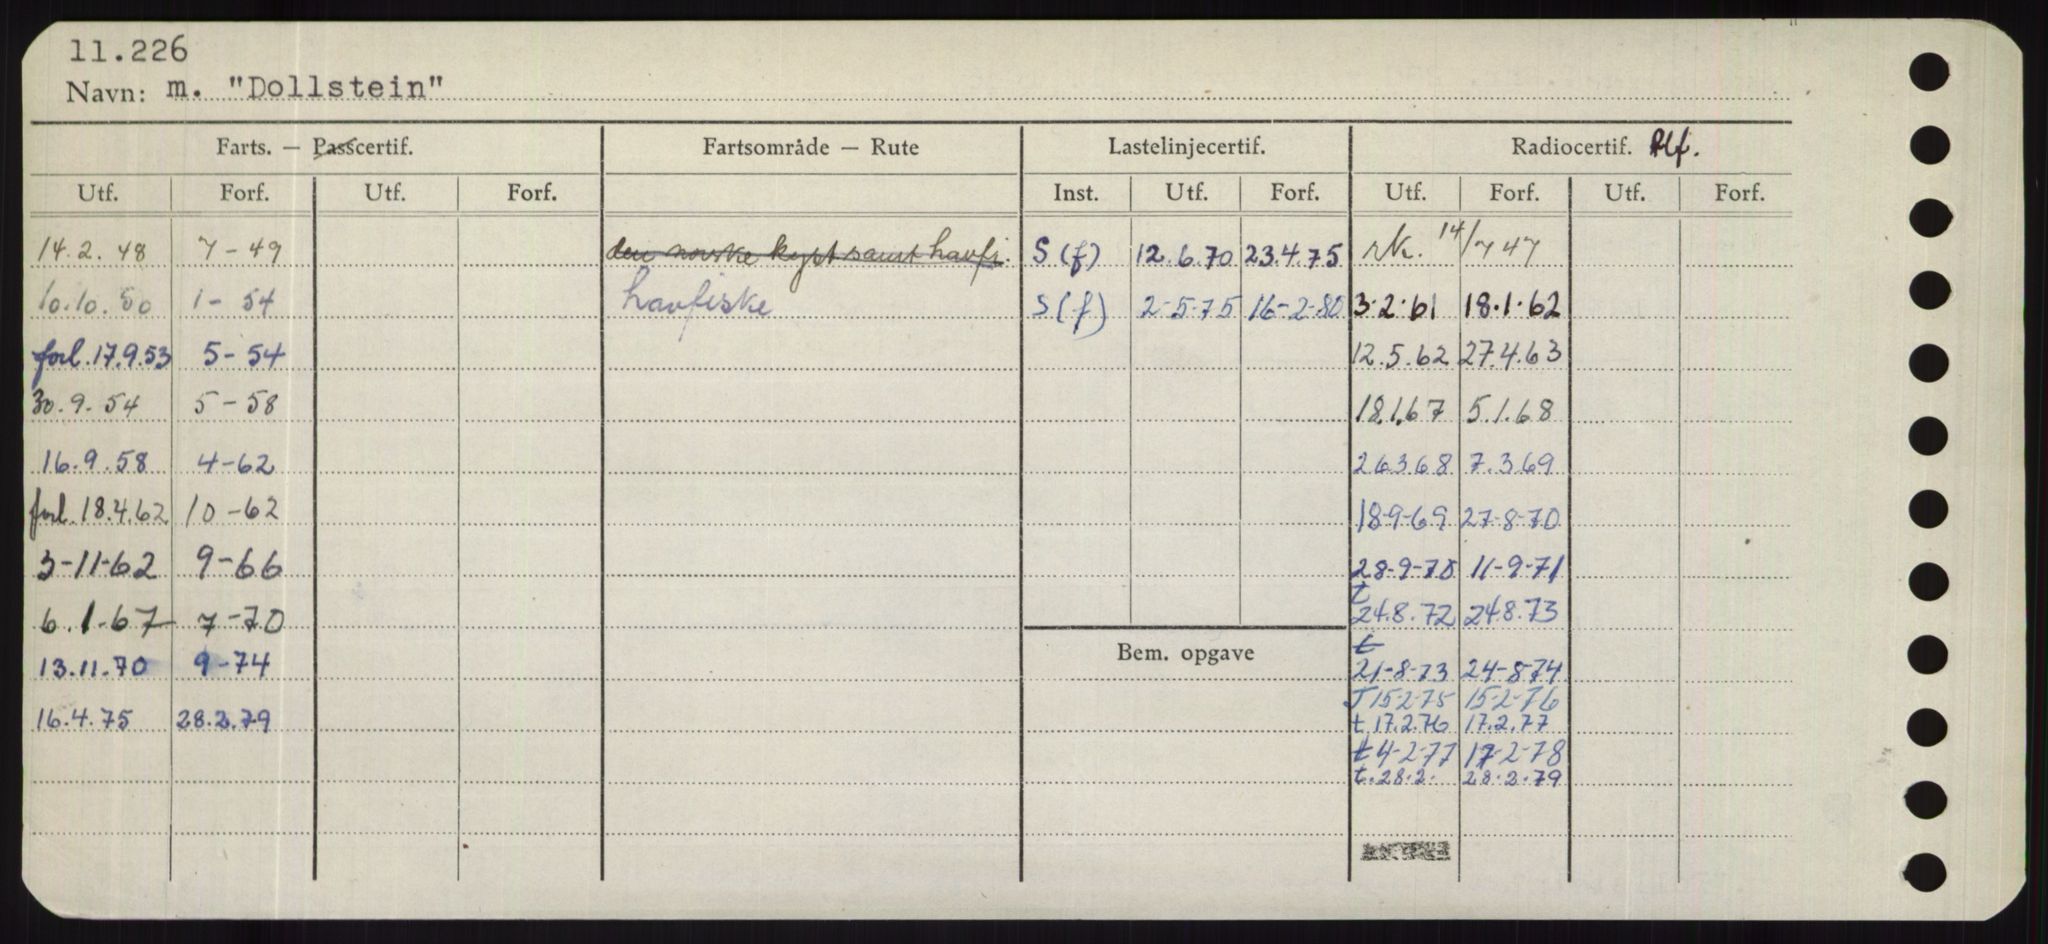 11.226
Navn: m. "Dollstein"
Farts. — Passcertif. Fartsområde — Rute Lastelinjecertif. Radiocertif. Rtlf.
Utf. Forf. Utf. Forf. Inst. Utf. Forf. Utf. Forf. Utf. Forf.
14.2.48 7-49 den norske kyst samt havfi. S (f) 12.6.70 23.4.75 14/7 47
10.10.50 1-54 havfiske S (f) 2-5-75 16-2-80 3.2.61 18.1.62
forl. 17.9.53 5-54 12.5.62 27.4.63
30.9.54 5-58 18.1.67 5.1.68
16.9.58 4-62 26368 7.369
forl. 18.4.62 10-62 18-9-69 27-8-70
3-11-62 9-66 28-9-70 11-9-71
t
6.1-67 7-70 24.8.72 24.8.73
t
13.11.70 9-74 21-8-73 24-874
T 15-2-75 15-2-76
16.4.75 28.2.79 t 17.2.76 17.2.77
t 4-2-77 17-2-78
t. 28.2. 28.2.79
Bem. opgave